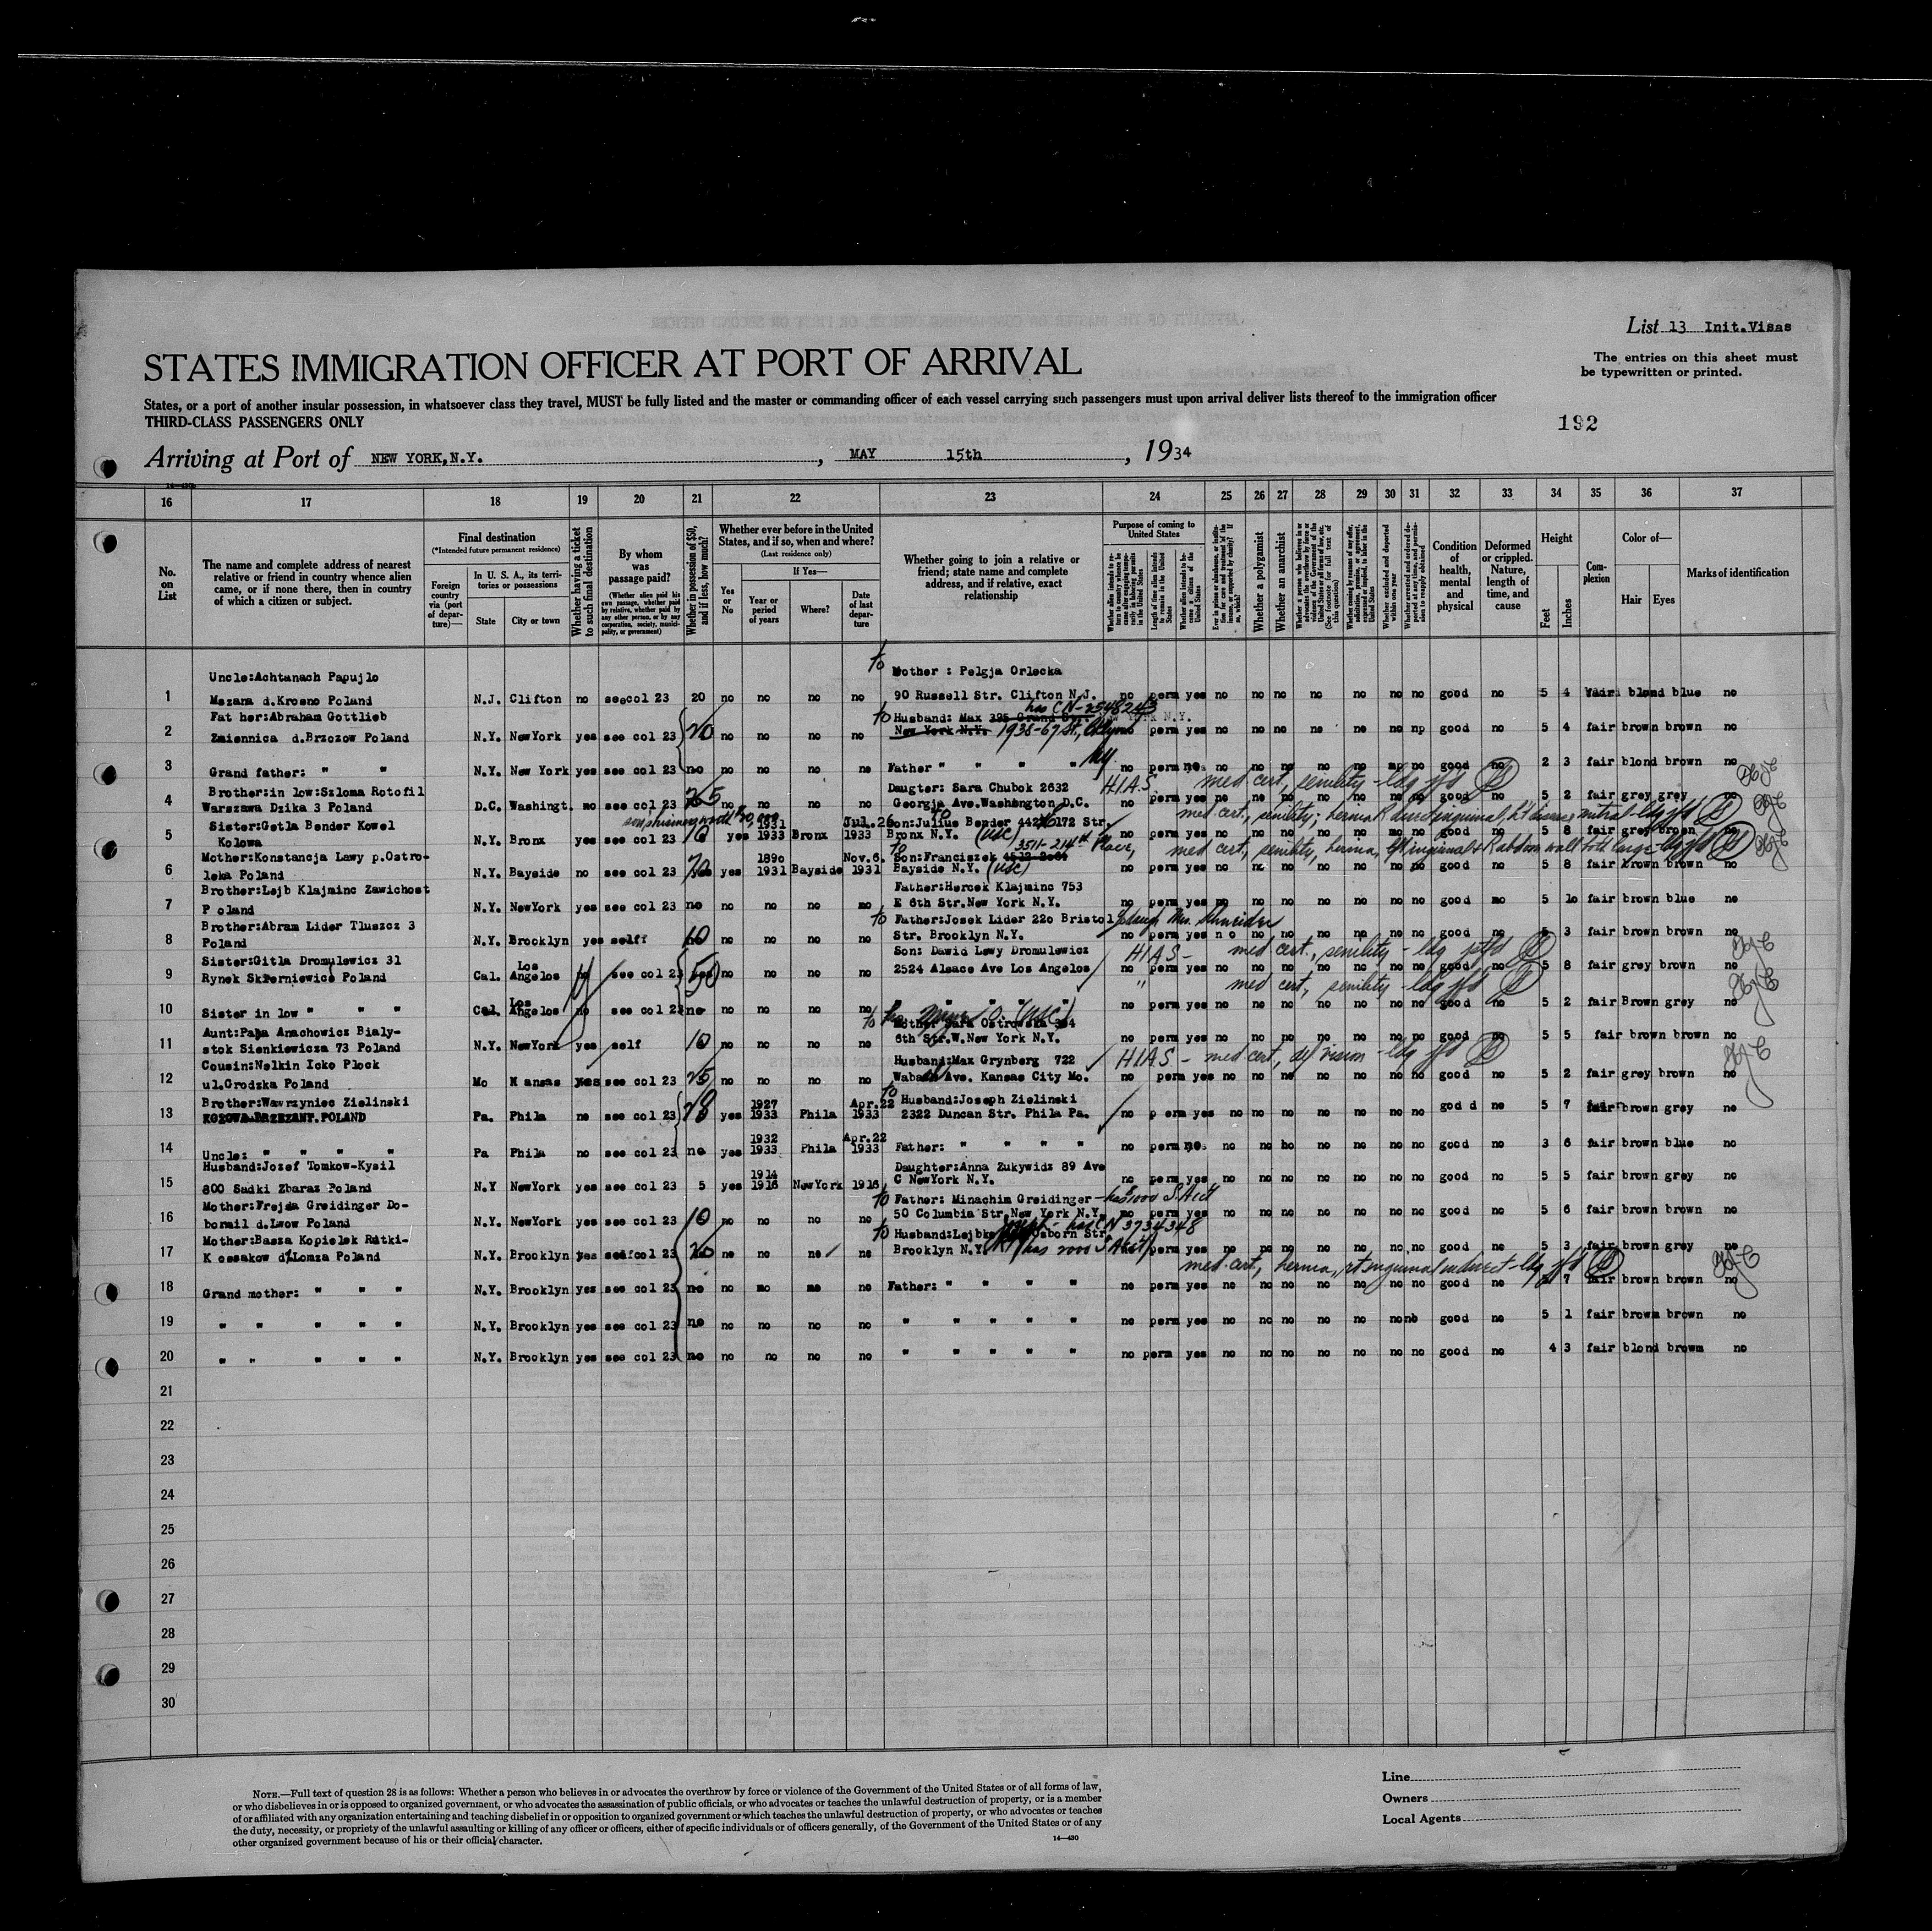 List 13 Init.Visas
STATES IMMIGRATION OFFICER AT PORT OF ARRIVAL
The entries on this sheet must
be typewritten or printed.
States, or a port of another insular possession, in whatsoever class they travel, MUST be fully listed and the master or commanding officer of each vessel carrying such passengers must upon arrival deliver lists thereof to the immigration officer
THIRD-CLASS PASSENGERS ONLY
192
Arriving at Port of NEW YORK,N.Y. , MAY 15th , 1934
16 17 18 19 20 21 22 23 24 25 26 27 28 29 30 31 32 33 34 35 36 37
No. on List
The name and complete address of nearest relative or friend in country whence alien came, or if none there, then in country of which a citizen or subject.
Final destination
(*Intended future permanent residence)
Foreign country via (port of departure)—
In U. S. A., its territories or possessions
State
City or town
Whether having a ticket to such final destination
By whom was passage paid?
(Whether alien paid his own passage, whether paid by relative, whether paid by any other person, or by any corporation, society, municipality, or government)
Whether in possession of $50, and if less, how much?
Whether ever before in the United States, and if so, when and where?
(Last residence only)
Yes or No
If Yes—
Year or period of years
Where?
Date of last departure
Whether going to join a relative or friend; state name and complete address, and if relative, exact relationship
Purpose of coming to United States
Whether a polygamist
Whether an anarchist
Condition of health, mental and physical
Deformed or crippled. Nature, length of time, and cause
Height
Feet
Inches
Complexion
Color of—
Hair
Eyes
Marks of identification
to Mother : Pelgja Orlecka
Uncle:Achtanach Papujlo
1 Mszana d.Krosno Poland N.J. Clifton no seecol 23 20 no no no no 90 Russell Str. Clifton N.J. no perm yes no no no no no no no good no 5 4 fair blond blue no
has CN-2548243
Fat her:Abraham Gottlieb to Husband: Max 395 Grand Str. New York N.Y.
2 Zmiennica d.Brzozow Poland N.Y. NewYork yes see col 23 20 no no no no New York N.Y. 1938-67 St, Bklyn perm yes no no no no no no np good no 5 4 fair brown brown no
N.Y.
3 Grand father: " " N.Y. New York yes see col 23 no no no no no Father " " " " no perm no no no no no no no no good no 2 3 fair blond brown no
Brother:in low:Szloma Rotofil Daugter: Sara Chubok 2632 H.I.A.S. med cert, senility
4 Warszawa Dzika 3 Poland D.C. Washingt. no see col 23 25 no no no no Georgia Ave.Washington D.C. no perm yes no no no no no no no good no 5 2 fair grey grey no
Sister:Getla Bender Kowel 1931 Jul.26 Son:Julius Bender 442 172 Str. med cert, senility; hernia R direct inguinal
5 Kolowa N.Y. Bronx yes see col 23 10 yes 1933 Bronx 1933 Bronx N.Y. (USC) no perm yes no no no no no no no good no 5 8 fair grey brown no
3511-214th Place, med cert, senility, hernia,
Mother:Konstancja Lawy p.Ostro- 1890 Nov.6. to Son:Franciszek
6 leka Poland N.Y. Bayside no see col 23 70 yes 1931 Bayside 1931 Bayside N.Y. (USC) no perm yes no no no no no no no good no 5 8 fair brown brown no
Brother:Lejb Klajminc Zawichost Father:Hercek Klajminc 753
7 P oland N.Y. NewYork yes see col 23 no no no no no E 6th Str.New York N.Y. no perm yes no no no no no no no good no 5 10 fair brown blue no
Brother:Abram Lider Tluszcz 3 to Father:Josek Lider 220 Bristol Mrs. Schneider
8 Poland N.Y. Brooklyn yes self 10 no no no no Str. Brooklyn N.Y. no perm yes no no no no no no no good no 5 3 fair brown brown no
Sister:Gitla Dromulewicz 31 Son: Dawid Lewy Dromulewicz HIAS - med cert., senility
9 Rynek Skierniewice Poland Cal. Los Angelos no see col 23 50 no no no no 2524 Alsace Ave Los Angelos no perm yes no no no no no no no good no 5 8 fair grey brown no
" med cert, senility
10 Sister in low " " " Cal. Los Angelos no see col 23 no no no no no " " " " no perm yes no no no no no no no good no 5 2 fair Brown grey no
Aunt:Papa Anachowicz Bialy- to Mother Sara Ostrowska (USC)
11 stok Sienkiewicza 73 Poland N.Y. NewYork yes self 10 no no no no 6th Str.W.New York N.Y. no perm yes no no no no no no no good no 5 5 fair brown brown no
Cousin:Nelkin Icko Plock Husband:Max Grynberg 722 HIAS - med cert, def vision
12 ul.Grodzka Poland Mo K ansas yes see col 23 25 no no no no Wabash Ave. Kansas City Mo. no perm yes no no no no no no no good no 5 2 fair grey brown no
Brother:Wawrzyniec Zielinski 1927 Apr.22 to Husband:Joseph Zielinski
13 KOZOWA.BRZEZANY.POLAND Pa. Phila no see col 23 28 yes 1933 Phila 1933 2322 Duncan Str. Phila Pa. no p erm yes no no no no no no no goo d no 5 7 fair brown grey no
1932 Apr.22
14 Uncle: " " " " Pa Phila no see col 23 no yes 1933 Phila 1933 Father: " " " " no perm no no no no no no no no good no 3 6 fair brown blue no
Husband:Jozef Tomkow-Kysil 1914 Daughter:Anna Zukywidz 89 Ave
15 800 Sadki Zbaraz Poland N.Y NewYork yes see col 23 5 yes 1916 NewYork 1916 C NewYork N.Y. no perm yes no no no no no no no good no 5 5 fair brown grey no
Mother:Frejda Greidinger Do- to Father: Minachim Greidinger - has 1000 S.Acct
16 bomil d.Lwow Poland N.Y. NewYork yes see col 23 10 no no no no 50 Columbia Str.New York N.Y. no perm yes no no no no no no no good no 5 6 fair brown brown no
Mother:Basza Kopielek Rutki- to Husband:Lejbko Osborn Str. has CN 3734348
17 K ossakow d.Lomza Poland N.Y. Brooklyn yes see col 23 20 no no no no Brooklyn N.Y. (has 2000 S Acct) perm yes no no no no no no no good no 5 3 fair brown grey no
med. cert, hernia, rt inguinal indirect
18 Grand mother: " " " N.Y. Brooklyn yes see col 23 no no no no no Father: " " " " no perm yes no no no no no no no good no 7 fair brown brown no
19 " " " " " N.Y. Brooklyn yes see col 23 no no no no no " " " " " no perm yes no no no no no no no good no 5 1 fair brown brown no
20 " " " " " N.Y. Brooklyn yes see col 23 no no no no no " " " " " no perm yes no no no no no no no good no 4 3 fair blond brown no
21
22
23
24
25
26
27
28
29
30
NOTE.—Full text of question 28 is as follows: Whether a person who believes in or advocates the overthrow by force or violence of the Government of the United States or of all forms of law,
or who disbelieves in or is opposed to organized government, or who advocates the assassination of public officials, or who advocates or teaches the unlawful destruction of property, or is a member
of or affiliated with any organization entertaining and teaching disbelief in or opposition to organized government or which teaches the unlawful destruction of property, or who advocates or teaches
the duty, necessity, or propriety of the unlawful assaulting or killing of any officer or officers, either of specific individuals or of officers generally, of the Government of the United States or of any
other organized government because of his or their official character.
14—430
Line
Owners
Local Agents